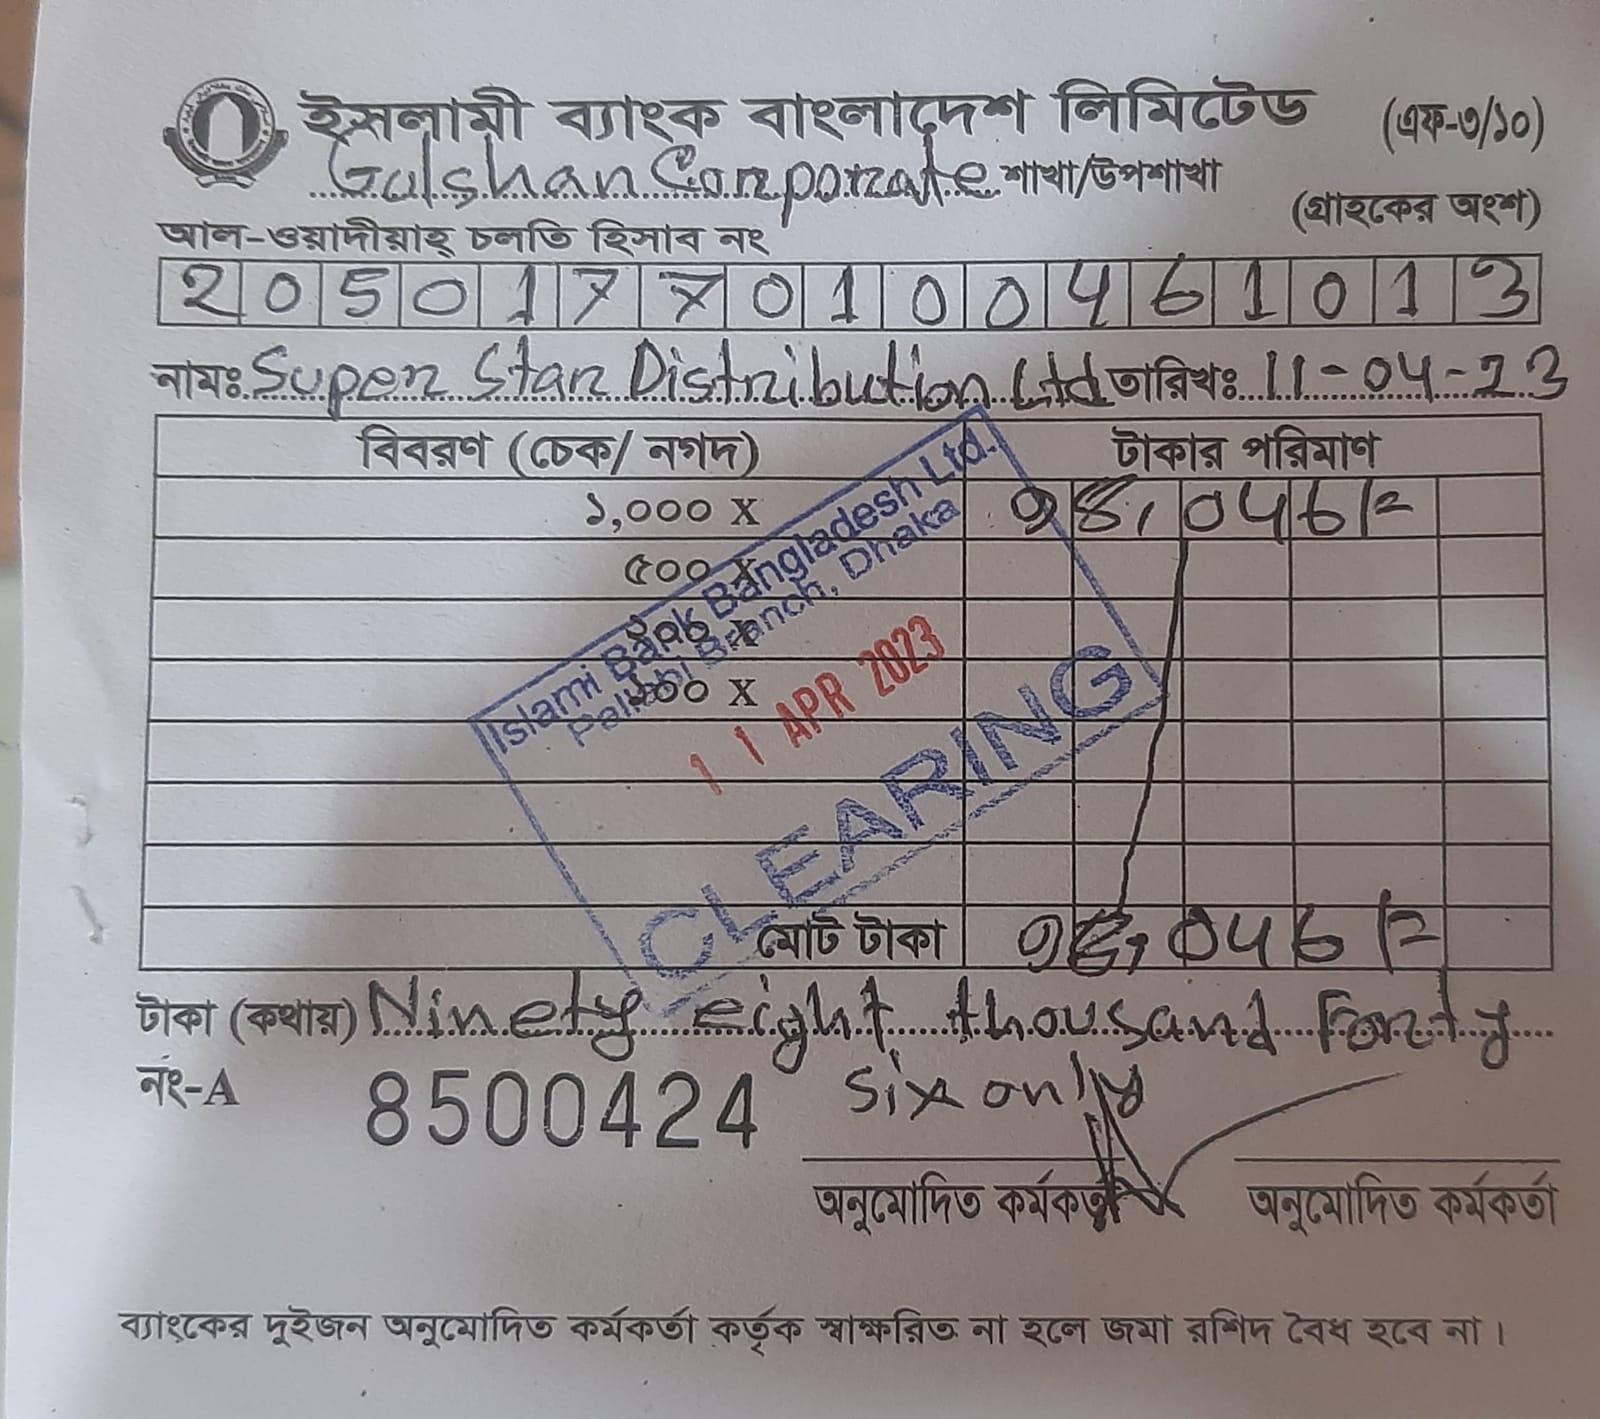 ইসলামী ব্যাংক বাংলাদেশ লিমিটেড (এফ-৩/১০)
Gulshan Corporate শাখা/উপশাখা
(গ্রাহকের অংশ)
আল-ওয়াদীয়াহ্ চলতি হিসাব নং
2 0 5 0 1 7 7 0 1 0 0 4 6 1 0 1 3
নামঃ Super Star Distribution Ltd তারিখঃ 11-04-23
বিবরণ (চেক/ নগদ) টাকার পরিমাণ
১,০০০ X 98,046/=
৫০০ X
১০০ X
Islami Bank Bangladesh Ltd.
Pallabi Branch, Dhaka
11 APR 2023
CLEARING
মোট টাকা 98,046/=
টাকা (কথায়) Ninety eight thousand Forty
six only
নং-A 8500424
অনুমোদিত কর্মকর্তা অনুমোদিত কর্মকর্তা
ব্যাংকের দুইজন অনুমোদিত কর্মকর্তা কর্তৃক স্বাক্ষরিত না হলে জমা রশিদ বৈধ হবে না।